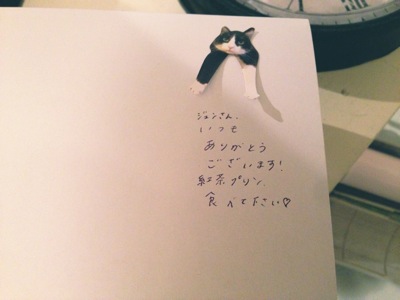 ジョンさん、
いつも
ありがとう
ございます!
紅茶プリン、
食べて下さい♡